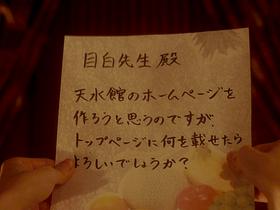 目白先生殿
天水館のホームページを
作ろうと思うのですが、
トップページに何を載せたら
よろしいでしょうか?